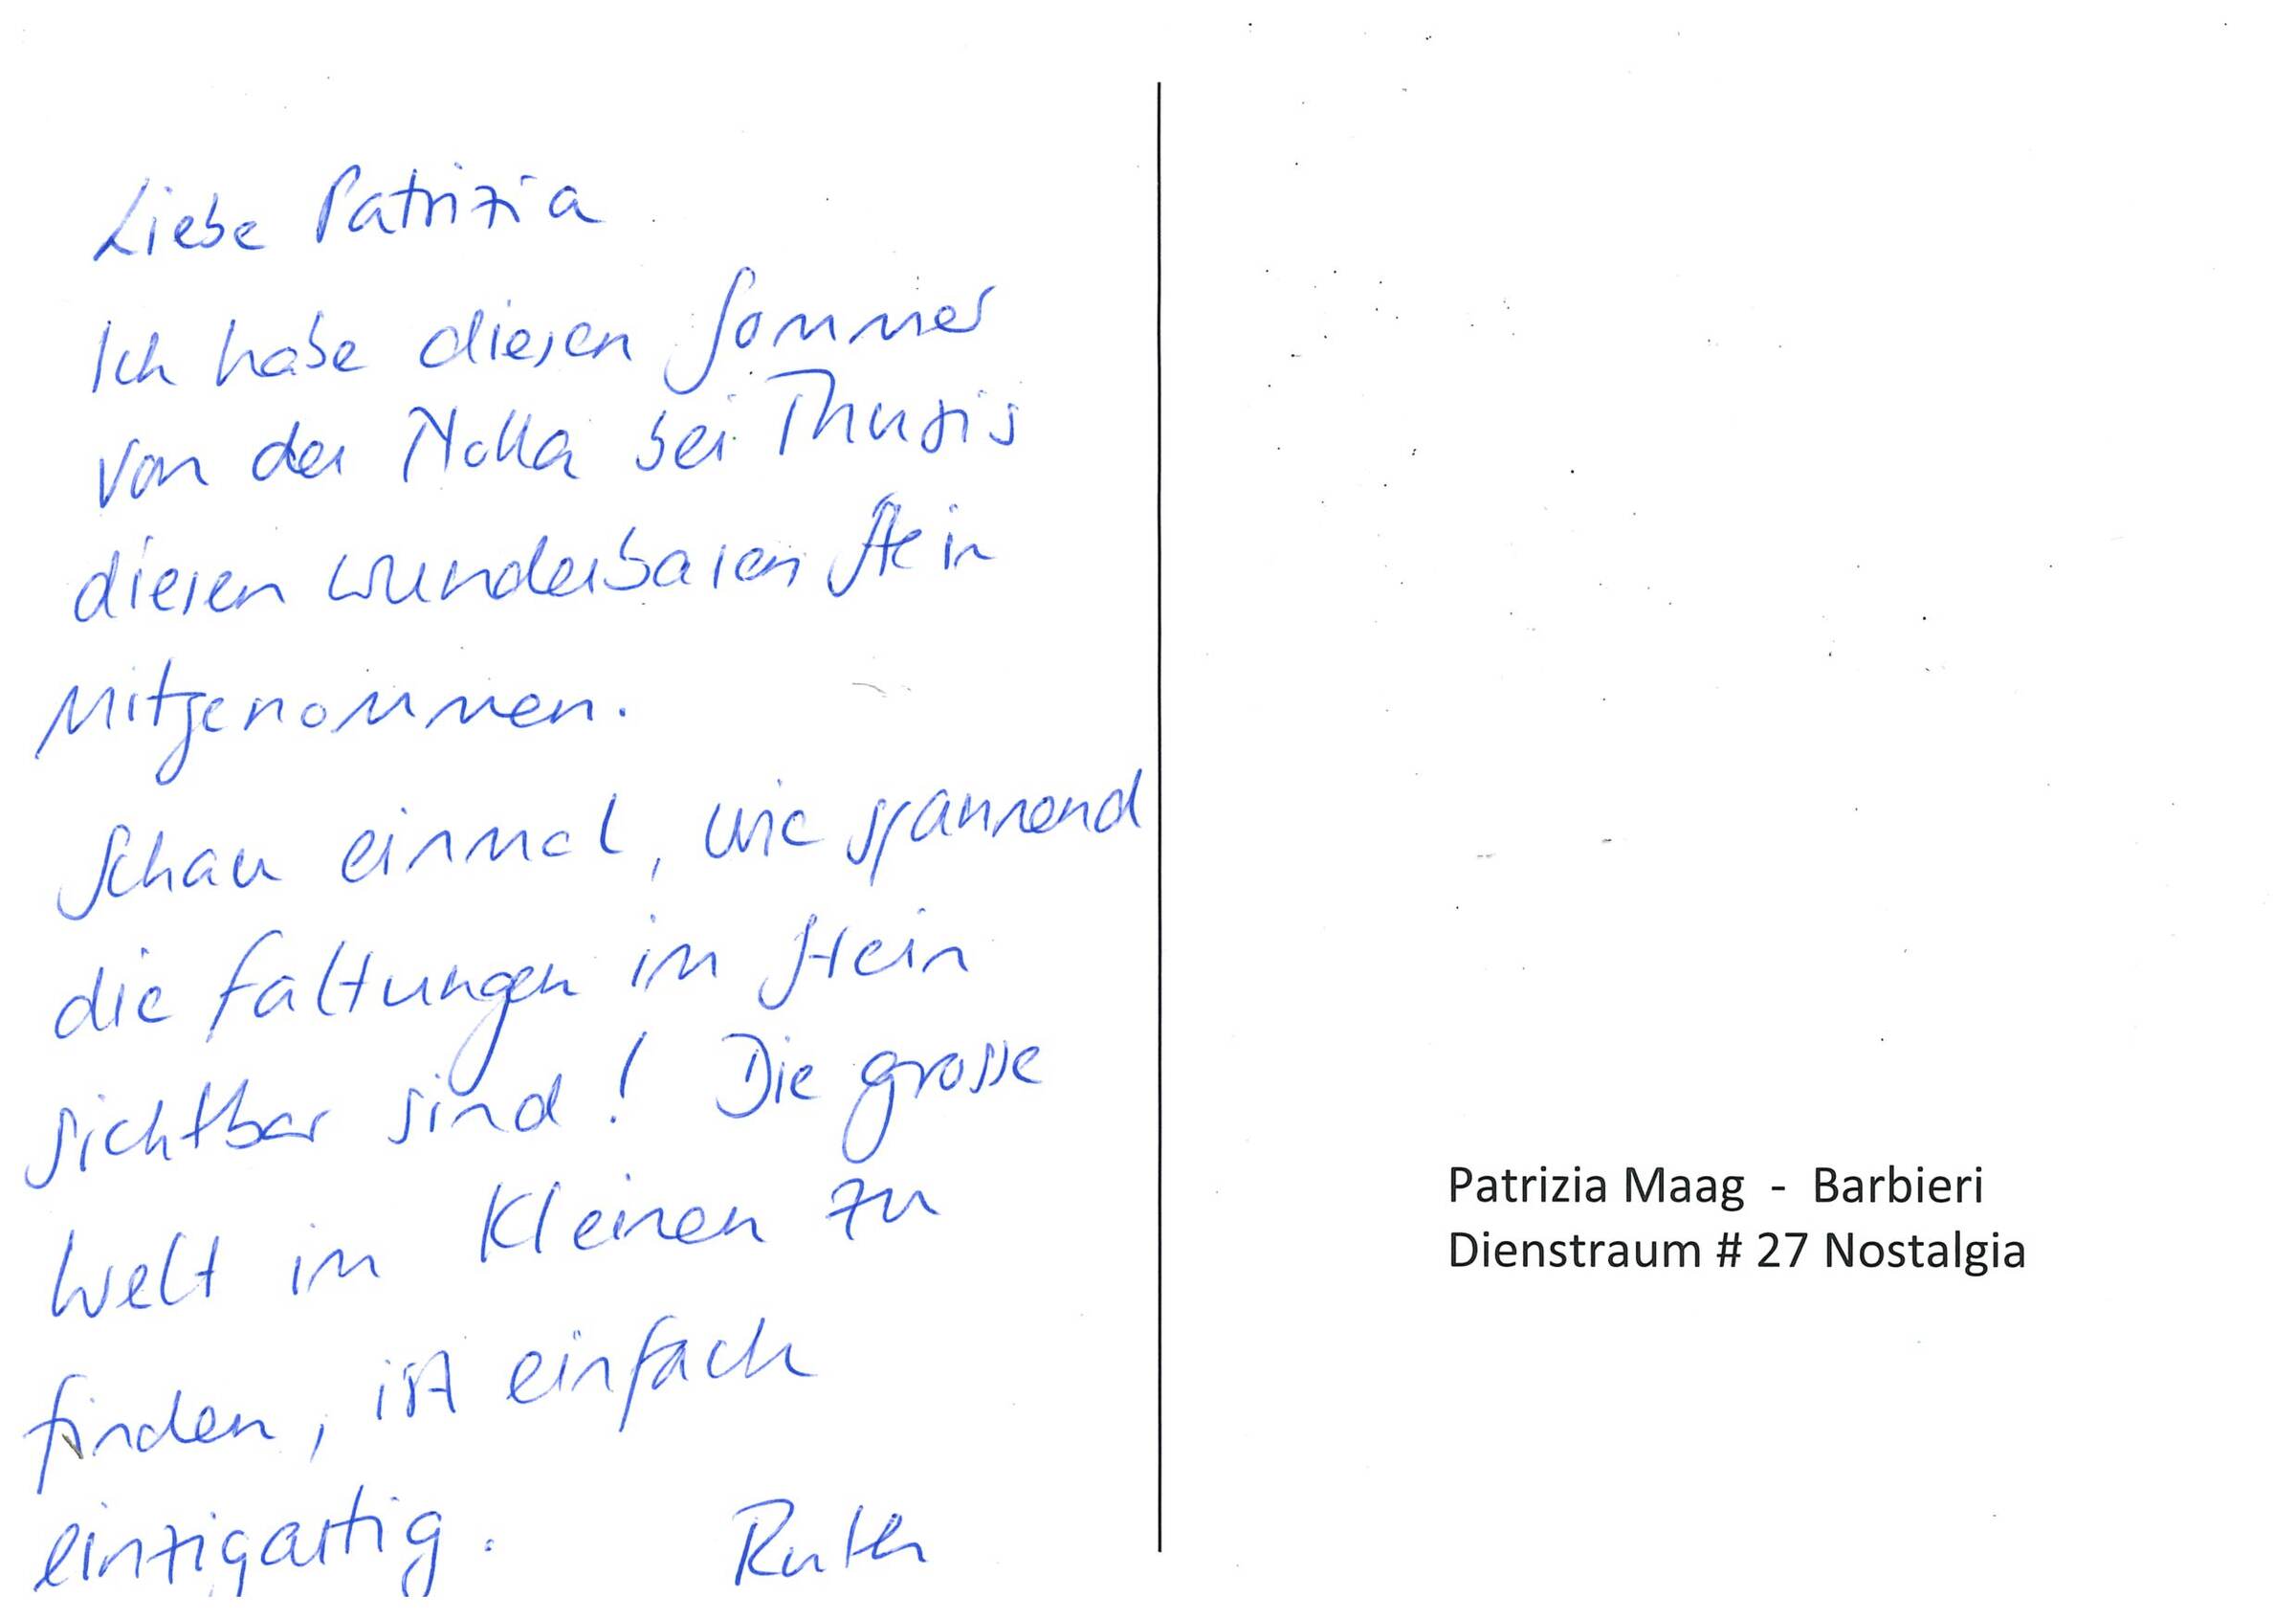 Liebe Patrizia
Ich habe diesen Sommer
von der Nolla bei Thusis
diesen wunderbaren Stein
mitgenommen.
Schau einmal, wie spannend
die Faltungen im Stein
sichtbar sind! Die grosse
Welt im Kleinen zu
finden, ist einfach
einzigartig. Ruth
Patrizia Maag - Barbieri
Dienstraum # 27 Nostalgia